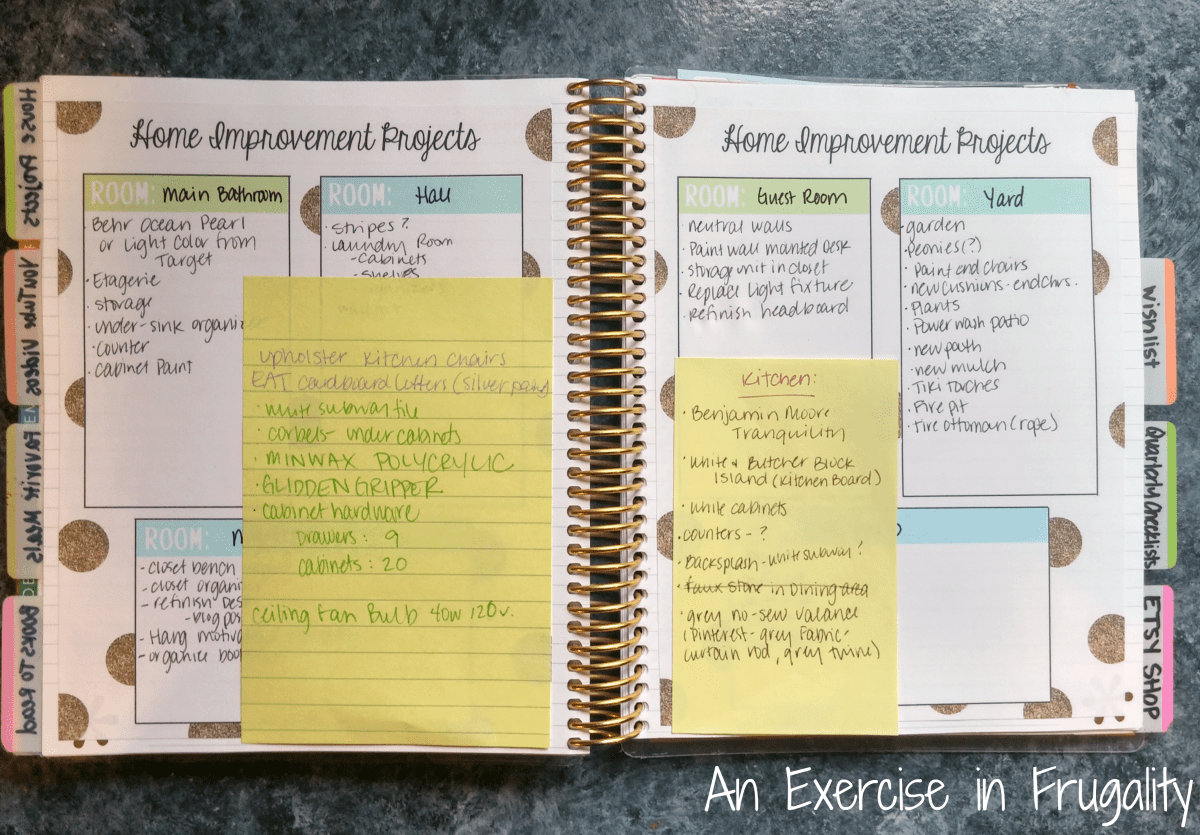 Home Improvement Projects
ROOM: Main Bathroom
Behr Ocean Pearl
or Light Color from
Target
· Etagerie
· storage
· under-sink
· counter
· cabinet Paint
ROOM: Hall
· stripes?
· Laundry Room
- Cabinets
- shelves
Upholster Kitchen Chairs
EAT cardboard letters (silver paint)
· white subway tile
· corbels- under cabinets
· MINWAX POLYCRYLIC
· GLIDDEN GRIPPER
· cabinet hardware
Drawers: 9
cabinets: 20
ceiling Fan Bulb 40w 120v.
ROOM:
- closet bench
- closet
- refinish
- Hang
- organize
Home Improvement Projects
ROOM: Guest Room
· neutral walls
· Paint wall mounted Desk
· storage unit in closet
· Replace Light Fixture
· Refinish headboard
ROOM: Yard
· garden
· Peonies(?)
· Paint end chairs
· new cushions - end chrs.
· Plants
· Power wash patio
· new path
· new mulch
· Tiki Torches
· Fire pit
· Fire ottoman (rope)
Kitchen:
· Benjamin Moore
Tranquility
· White + Butcher Block
Island (Kitchen Board)
· white cabinets
· counters - ?
· Backsplash - white subway?
· Faux Stone in Dining area
· grey no-sew valance
(Pinterest - grey fabric -
curtain rod, grey twine)
House Projects
Books to Read
Wishlist
Quarterly Checklists
ETSY SHOP
An Exercise in Frugality